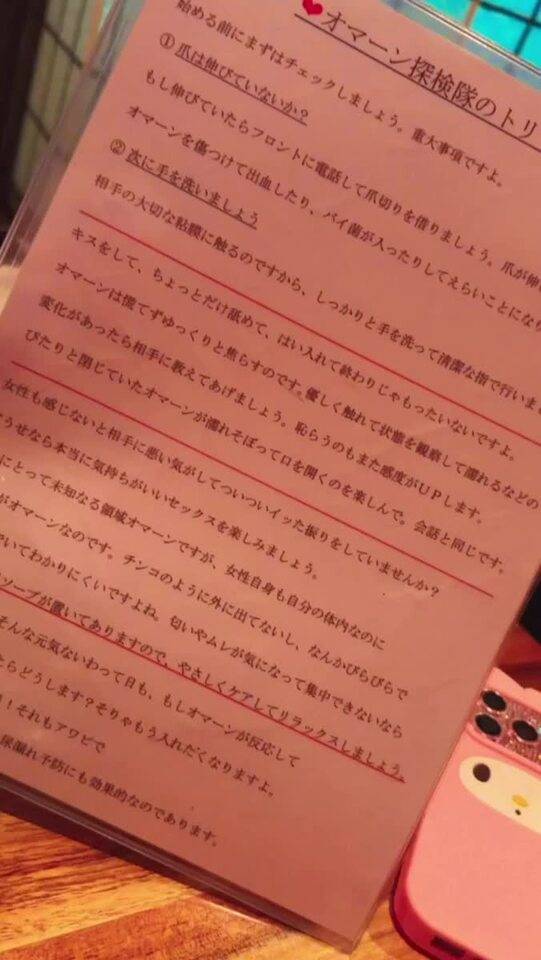 ❤オマーン探検隊のトリ
始める前にまずはチェックしましょう。重大事項ですよ。
① 爪は伸びていないか?
もし伸びていたらフロントに電話して爪切りを借りましょう。爪が伸
オマーンを傷つけて出血したり、バイ菌が入ったりしてえらいことになり
② 次に手を洗いましょう
相手の大切な粘膜に触るのですから、しっかりと手を洗って清潔な指で行いま
キスをして、ちょっとだけ舐めて、はい入れて終わりじゃもったいないですよ。
オマーンは慌てずゆっくりと焦らすのです。優しく触れて状態を観察して濡れるなどの
変化があったら相手に教えてあげましょう。恥らうのもまた感度がUPします。
ぴたりと閉じていたオマーンが濡れそぼって口を開くのを楽しんで。会話と同じです。
女性も感じないと相手に悪い気がしてついついイッた振りをしていませんか?
うせなら本当に気持ちがいいセックスを楽しみましょう。
にとって未知なる領域オマーンですが、女性自身も自分の体内なのに
がオマーンなのです。チンコのように外に出てないし、なんかびらびらで
いてわかりにくいですよね。匂いやムレが気になって集中できないなら
ソープが置いてありますので、やさしくケアしてリラックスしましょう。
そんな元気ないわって日も、もしオマーンが反応して
たらどうします?そりゃもう入れたくなりますよ。
!それもアワビで
尿漏れ予防にも効果的なのであります。